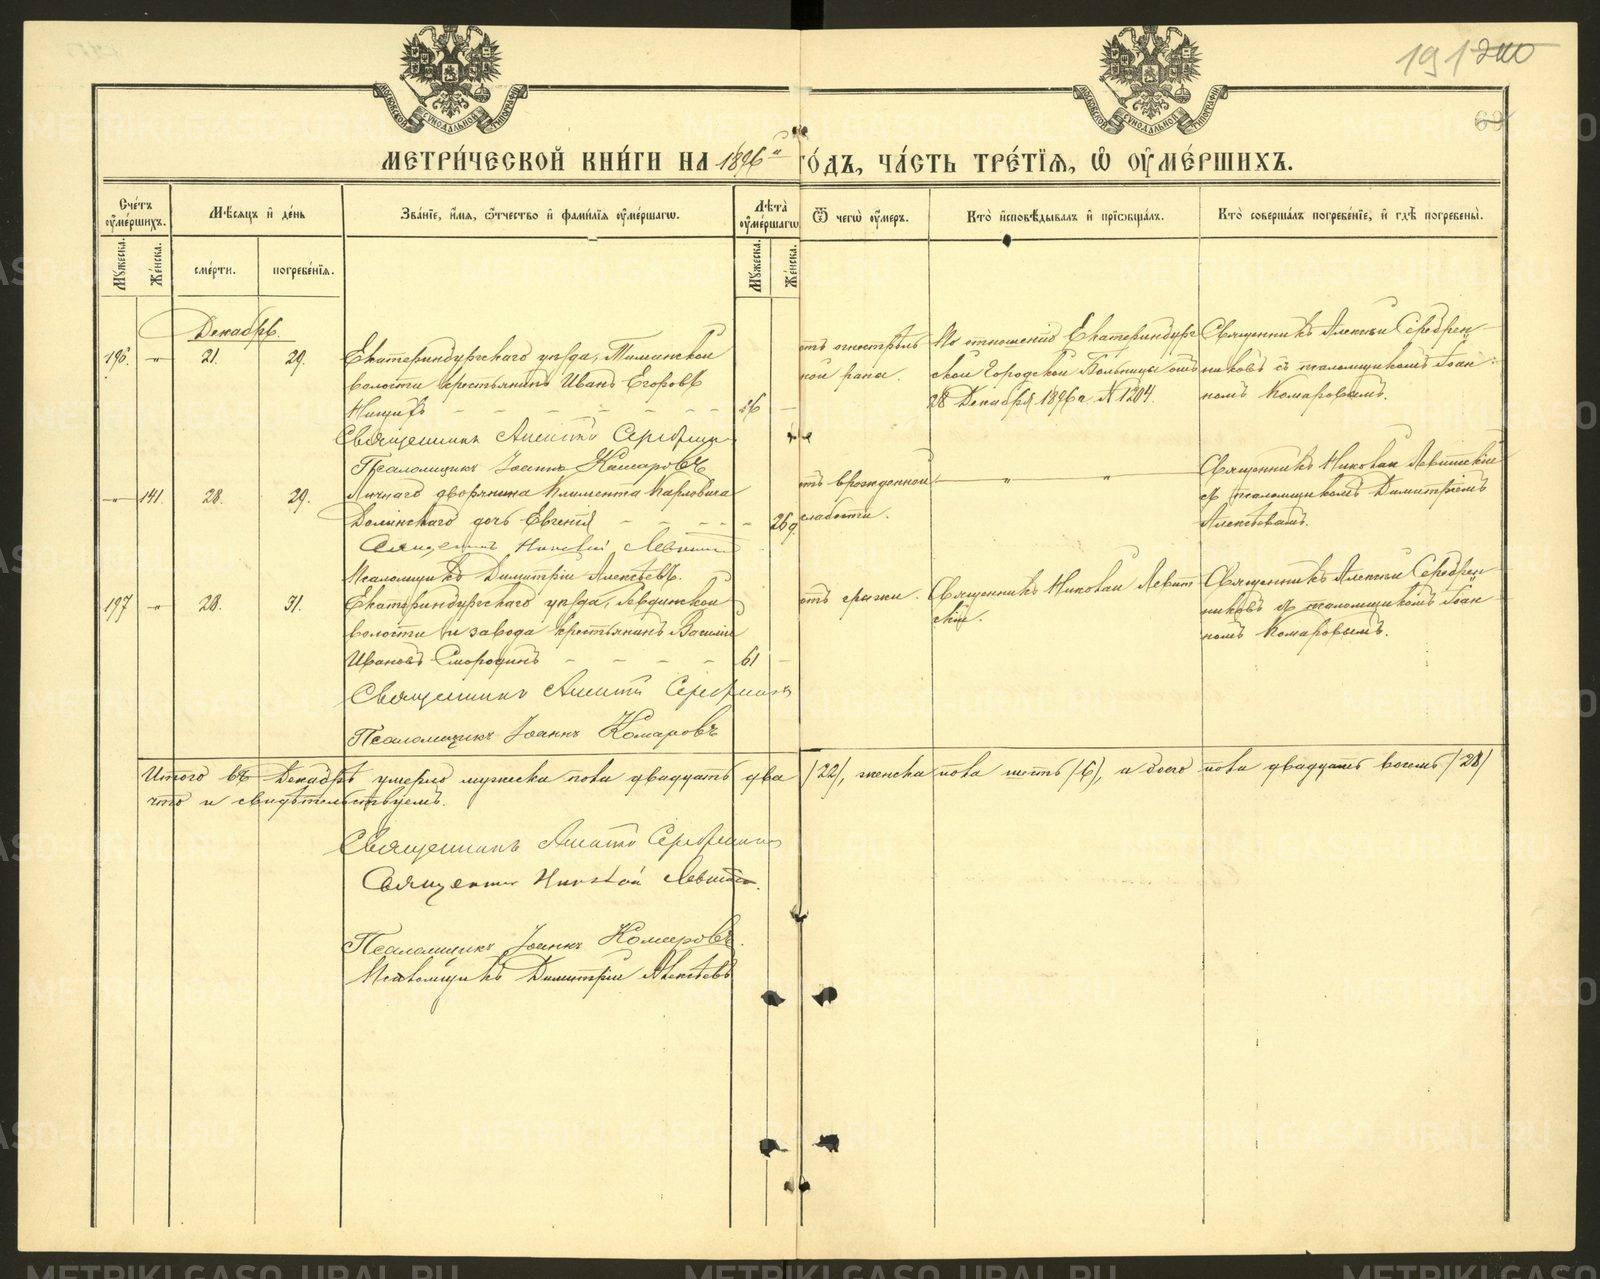 191 200
69
МОСКОВСКОЙ СѴНОДАЛЬНОЙ ТИПОГРАФІИ
МОСКОВСКОЙ СѴНОДАЛЬНОЙ ТИПОГРАФІИ
МЕТРИ́ЧЕСКОЙ КНИ́ГИ НА 1896й ГО́ДЪ, ЧА́СТЬ ТРЕ́ТІѦ, Ѡ҆ ОУ҆МЕ́РШИХЪ.
Сче́тъ оу҆ме́ршихъ.
Мѣ́сяцъ и҆ де́нь
Зва́нїе, и҆́мя, ѻ҆́тчество и҆ фами́лїя оу҆ме́ршагѡ.
Лѣ́та оу҆ме́ршагѡ
Ѿ чегѡ̀ оу҆́меръ.
Кто̀ и҆сповѣ́дывалъ и҆ прїѡбща́лъ.
Кто̀ соверша́лъ погребе́нїе, и҆ гдѣ̀ погребены̀.
Мꙋ́жеска.
Же́нска.
сме́рти.
погребе́нїя.
Мꙋ́жеска.
Же́нска.
Декабрь.
196. " 21. 29. Екатеринбургскаго уѣзда,
волости крестьянинъ Иванъ Егоровъ
56 —
Священникъ Алексій Серебрен
Псаломщикъ Іоаннъ Комаровъ
отъ огнестрѣль
ной раны.
По отношенію Екатеринбург
ской Городской Больницы отъ
28 Декабря 1896 г. № 1204.
Священникъ Алексій Серебрен
никовъ съ псаломщикомъ Іоан
номъ Комаровымъ.
— 141. 28. 29. Личнаго дворянина Климента Карловича
дочь Евгенія — 26 д.
Священникъ Николай Левитскій
Псаломщикъ Димитрій Алексѣевъ.
отъ врожденной
слабости.
" "
Священникъ Николай Левитскій
съ псаломщикомъ Димитріемъ
Алексѣевымъ.
197 " 28. 31. Екатеринбургскаго уѣзда,
волости и завода крестьянинъ Василій
Ивановъ Смородинъ 61 —
Священникъ Алексій Серебренник
Псаломщикъ Іоаннъ Комаровъ
отъ грыжи.
Священникъ Николай Левит
скій.
Священникъ Алексій Серебрен
никовъ съ псаломщикомъ Іоан
номъ Комаровымъ.
Итого въ Декабрѣ умерло мужеска пола двадцать два /22/, женска пола шесть /6/, а обоего пола двадцать восемь /28/
что и свидѣтельствуемъ.
Священникъ Алексій Серебренник
Священникъ Николай Левитскій.
Псаломщикъ Іоаннъ Комаровъ.
Псаломщикъ Димитрій Алексѣевъ
METRIKI.GASO-URAL.RU